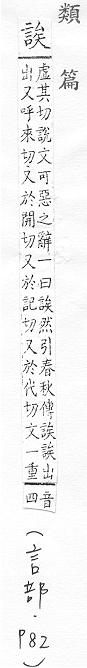 類篇
誒
虛其切說文可惡之辭一曰誒然引春秋傳誒誒出
出又呼來切又於開切又於記切又於代切文一重
音
四
(言部·P82)